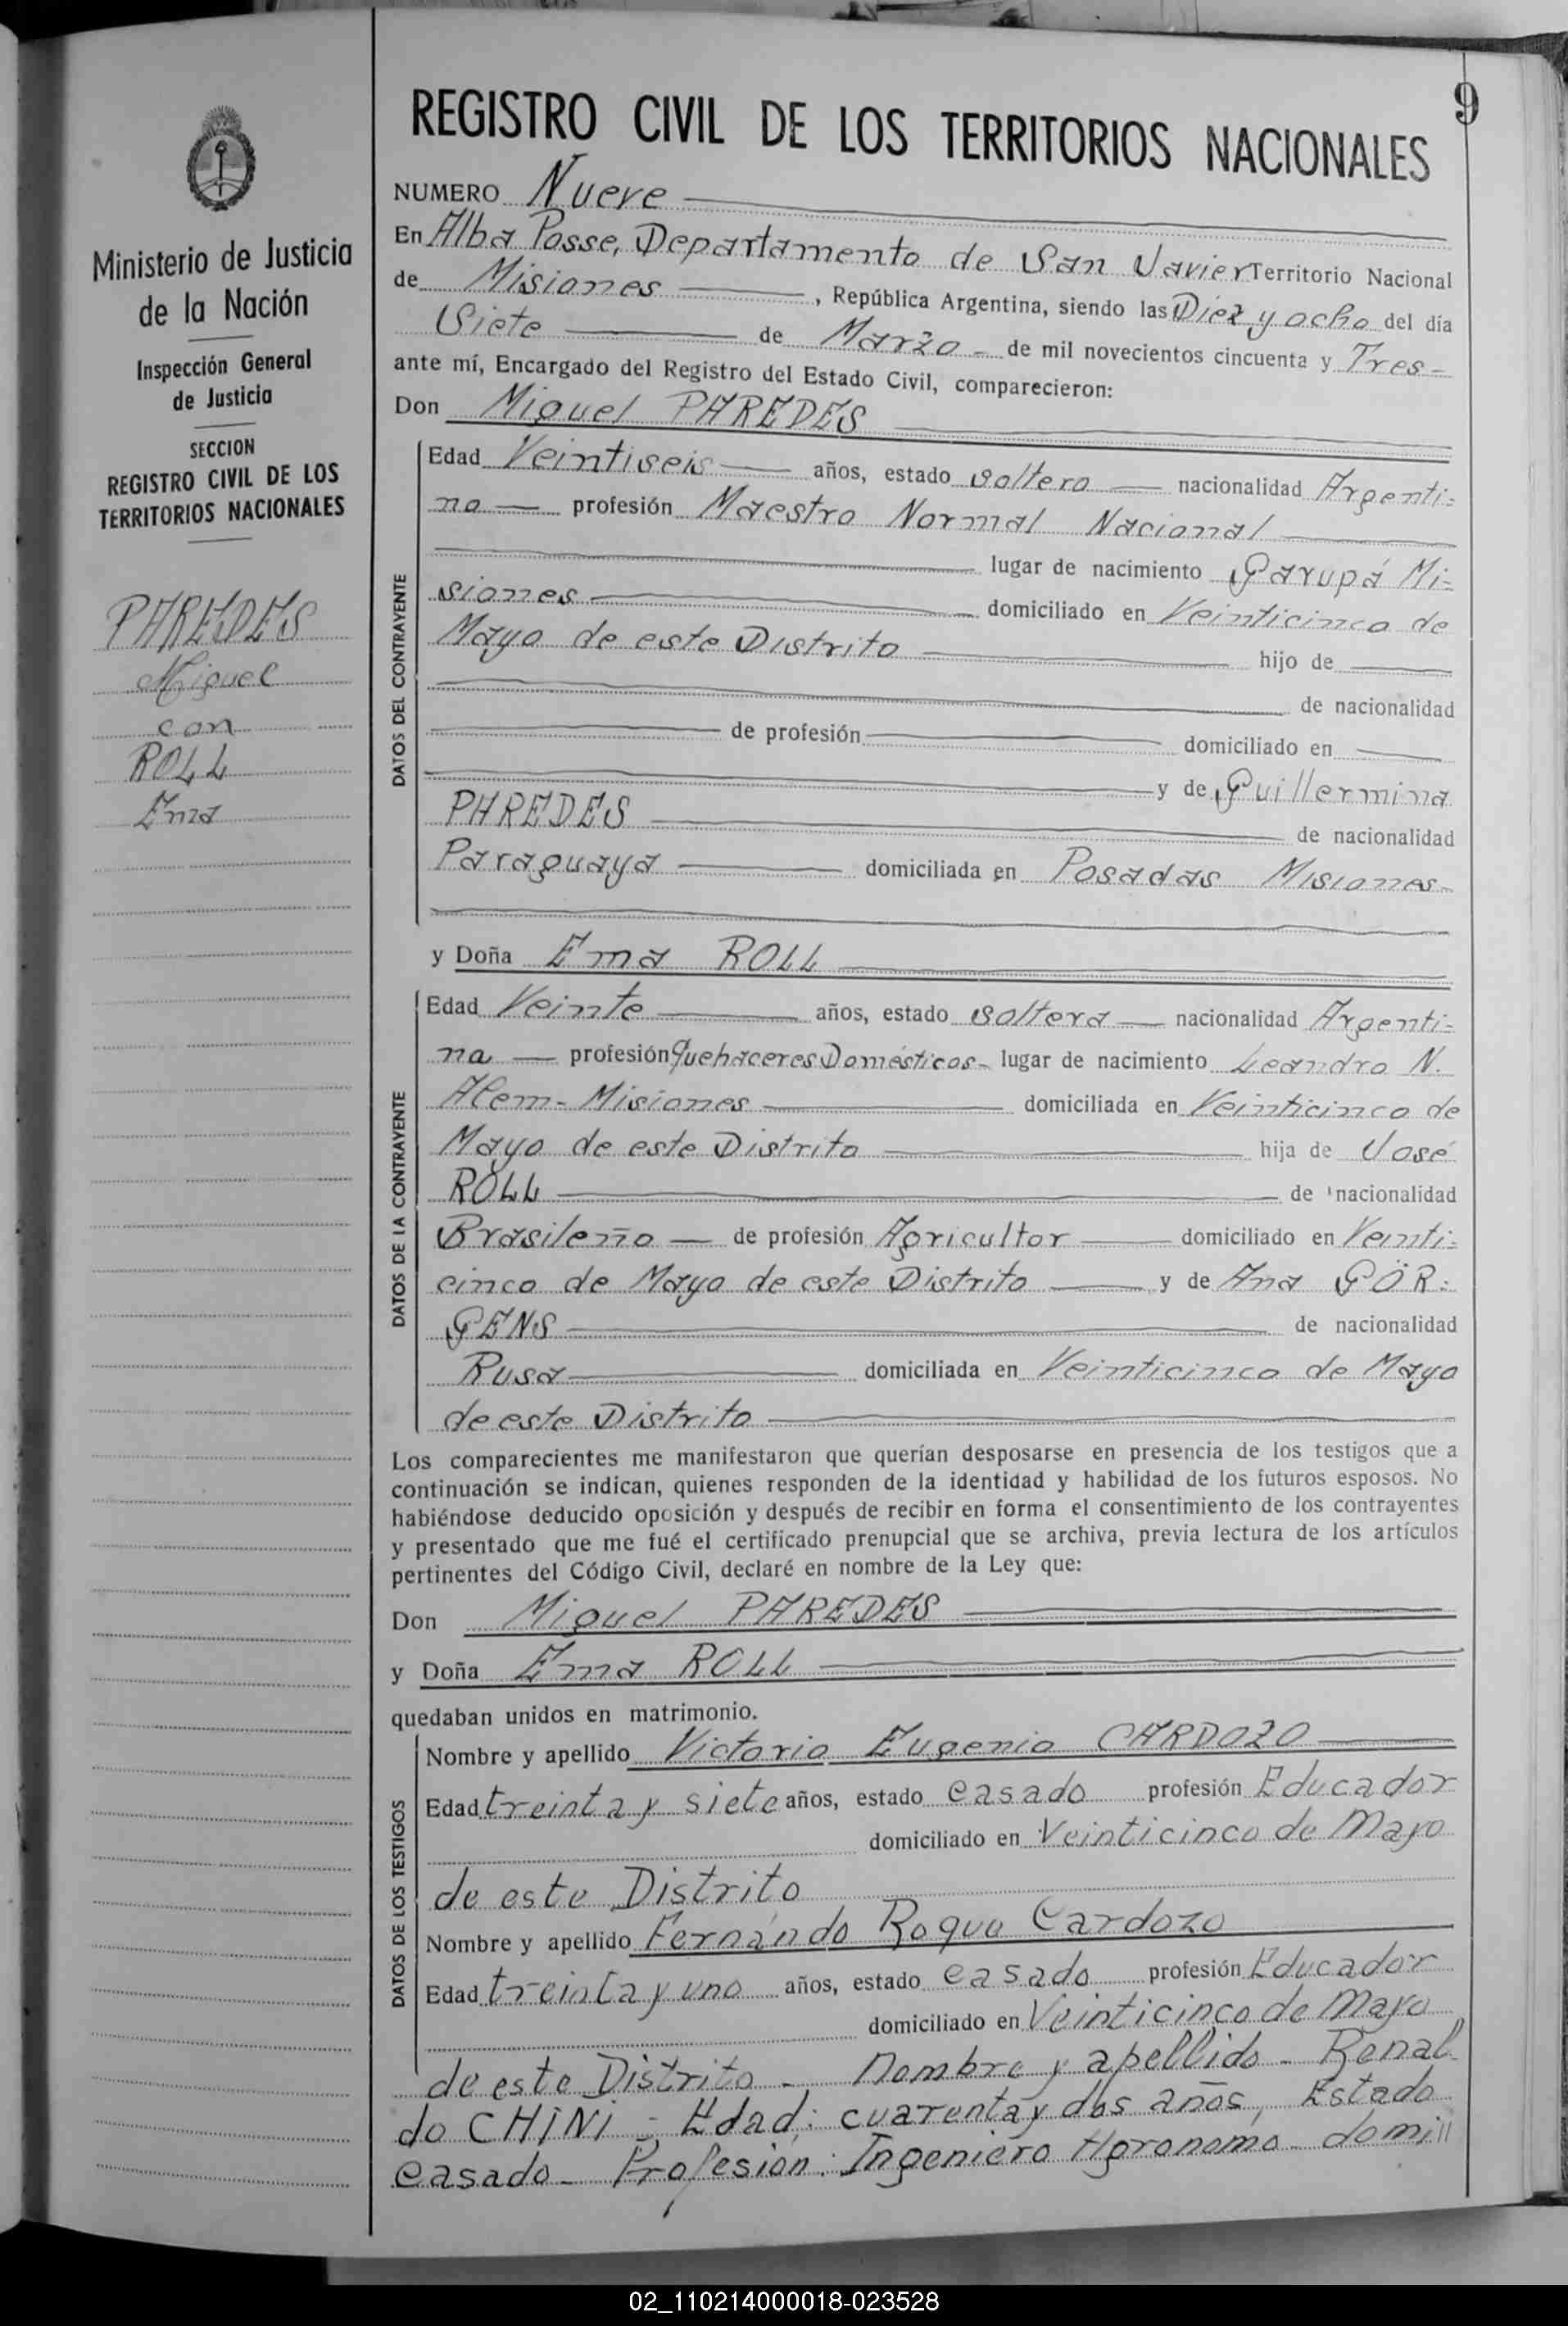 9
REGISTRO CIVIL DE LOS TERRITORIOS NACIONALES
Ministerio de Justicia
de la Nación
Inspección General
de Justicia
SECCION
REGISTRO CIVIL DE LOS
TERRITORIOS NACIONALES
PAREDES
Miguel
con
ROLL
Ema
NUMERO Nueve
En Alba Posse, Departamento de San Javier Territorio Nacional
de Misiones, República Argentina, siendo las Diez y ocho del día
Siete de Marzo - de mil novecientos cincuenta y Tres -
ante mí, Encargado del Registro del Estado Civil, comparecieron:
Don Miguel PAREDES
DATOS DEL CONTRAYENTE
Edad Veintiseis años, estado soltero nacionalidad Argenti=
no profesión Maestro Normal Nacional
lugar de nacimiento Garupá Mi=
siones domiciliado en Veinticinco de
Mayo de este Distrito hijo de
de nacionalidad
de profesión domiciliado en
y de Guillermina
PAREDES de nacionalidad
Paraguaya domiciliada en Posadas Misiones-
y Doña Ema ROLL
DATOS DE LA CONTRAYENTE
Edad Veinte años, estado soltera nacionalidad Argenti=
na profesión Quehaceres Domésticos- lugar de nacimiento Leandro N.
Alem - Misiones domiciliada en Veinticinco de
Mayo de este Distrito hija de José
ROLL de nacionalidad
Brasileño de profesión Agricultor domiciliado en Veinti=
cinco de Mayo de este Distrito y de Ana GÖR=
GENS de nacionalidad
Rusa domiciliada en Veinticinco de Mayo
de este Distrito
Los comparecientes me manifestaron que querían desposarse en presencia de los testigos que a
continuación se indican, quienes responden de la identidad y habilidad de los futuros esposos. No
habiéndose deducido oposición y después de recibir en forma el consentimiento de los contrayentes
y presentado que me fué el certificado prenupcial que se archiva, previa lectura de los artículos
pertinentes del Código Civil, declaré en nombre de la Ley que:
Don Miguel PAREDES
y Doña Ema ROLL
quedaban unidos en matrimonio.
DATOS DE LOS TESTIGOS
Nombre y apellido Victorio Eugenio CARDOZO
Edad treinta y siete años, estado casado profesión Educador
domiciliado en Veinticinco de Mayo
de este Distrito
Nombre y apellido Fernándo Roque Cardozo
Edad treinta y uno años, estado casado profesión Educador
domiciliado en Veinticinco de Mayo
de este Distrito - Nombre y apellido - Renal
do CHINI - Edad: cuarenta y dos años, Estado
casado - Profesión: Ingeniero Agronomo - domi
02_110214000018-023528